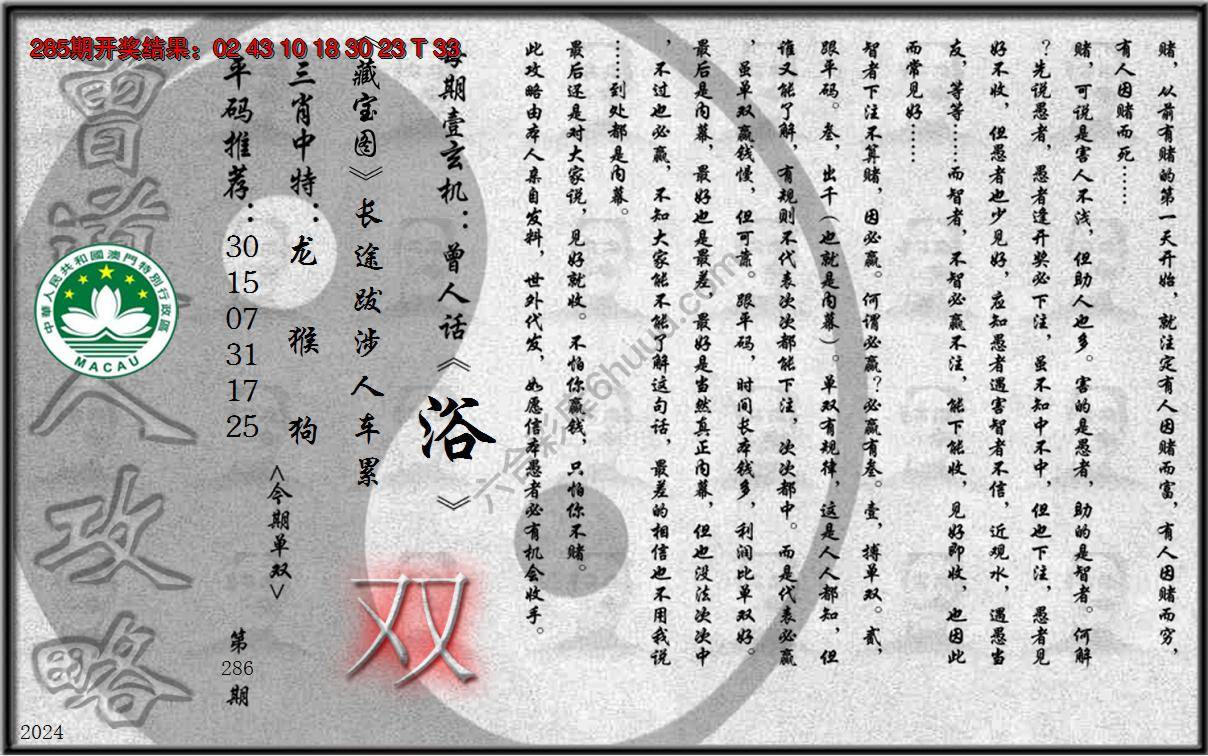 285期开奖结果：02 43 10 18 30 23 T 33
赌，从前有赌的第一天开始，就注定有人因赌而富，有人因赌而穷，
有人因赌而死……
赌，可说是害人不浅，但助人也多。害的是愚者，助的是智者。何解
？先说愚者，愚者逢开奖必下注，虽不知中不中，但也下注，愚者见
好不收，但愚者也少见好，应知愚者遇害智者不信，近观水，遇愚当
友，等等……而智者，不智必赢不注，能下能收，见好即收，也因此
而常见好……
智者下注不算赌，因必赢。何谓必赢？必赢有叁。壹，搏单双。贰，
跟平码。叁，出千（也就是内幕）。单双有规律，这是人人都知，但
谁又能了解，有规则不代表次次都能下注，次次都中。而是代表必赢
，虽单双赢钱慢，但可靠。跟平码，时间长本钱多，利润比单双好。
最后是内幕，最好也是最差，最好是当然真正内幕，但也没法次次中
，不过也必赢，不知大家能不能了解这句话，最差的相信也不用我说
……到处都是内幕。
最后还是对大家说，见好就收。不怕你赢钱，只怕你不赌。
此攻略由本人亲自发料，世外代发，如愿信本愚者必有机会收手。
每期壹玄机：曾人话《浴》
《藏宝图》长途跋涉人车累
双
三肖中特：龙 猴 狗
<今期单双>
平码推荐：30 15 07 31 17 25
第286期
曾道人攻略
中華人民共和國澳門特別行政區
MACAU
六合彩库6huuu.com
2024